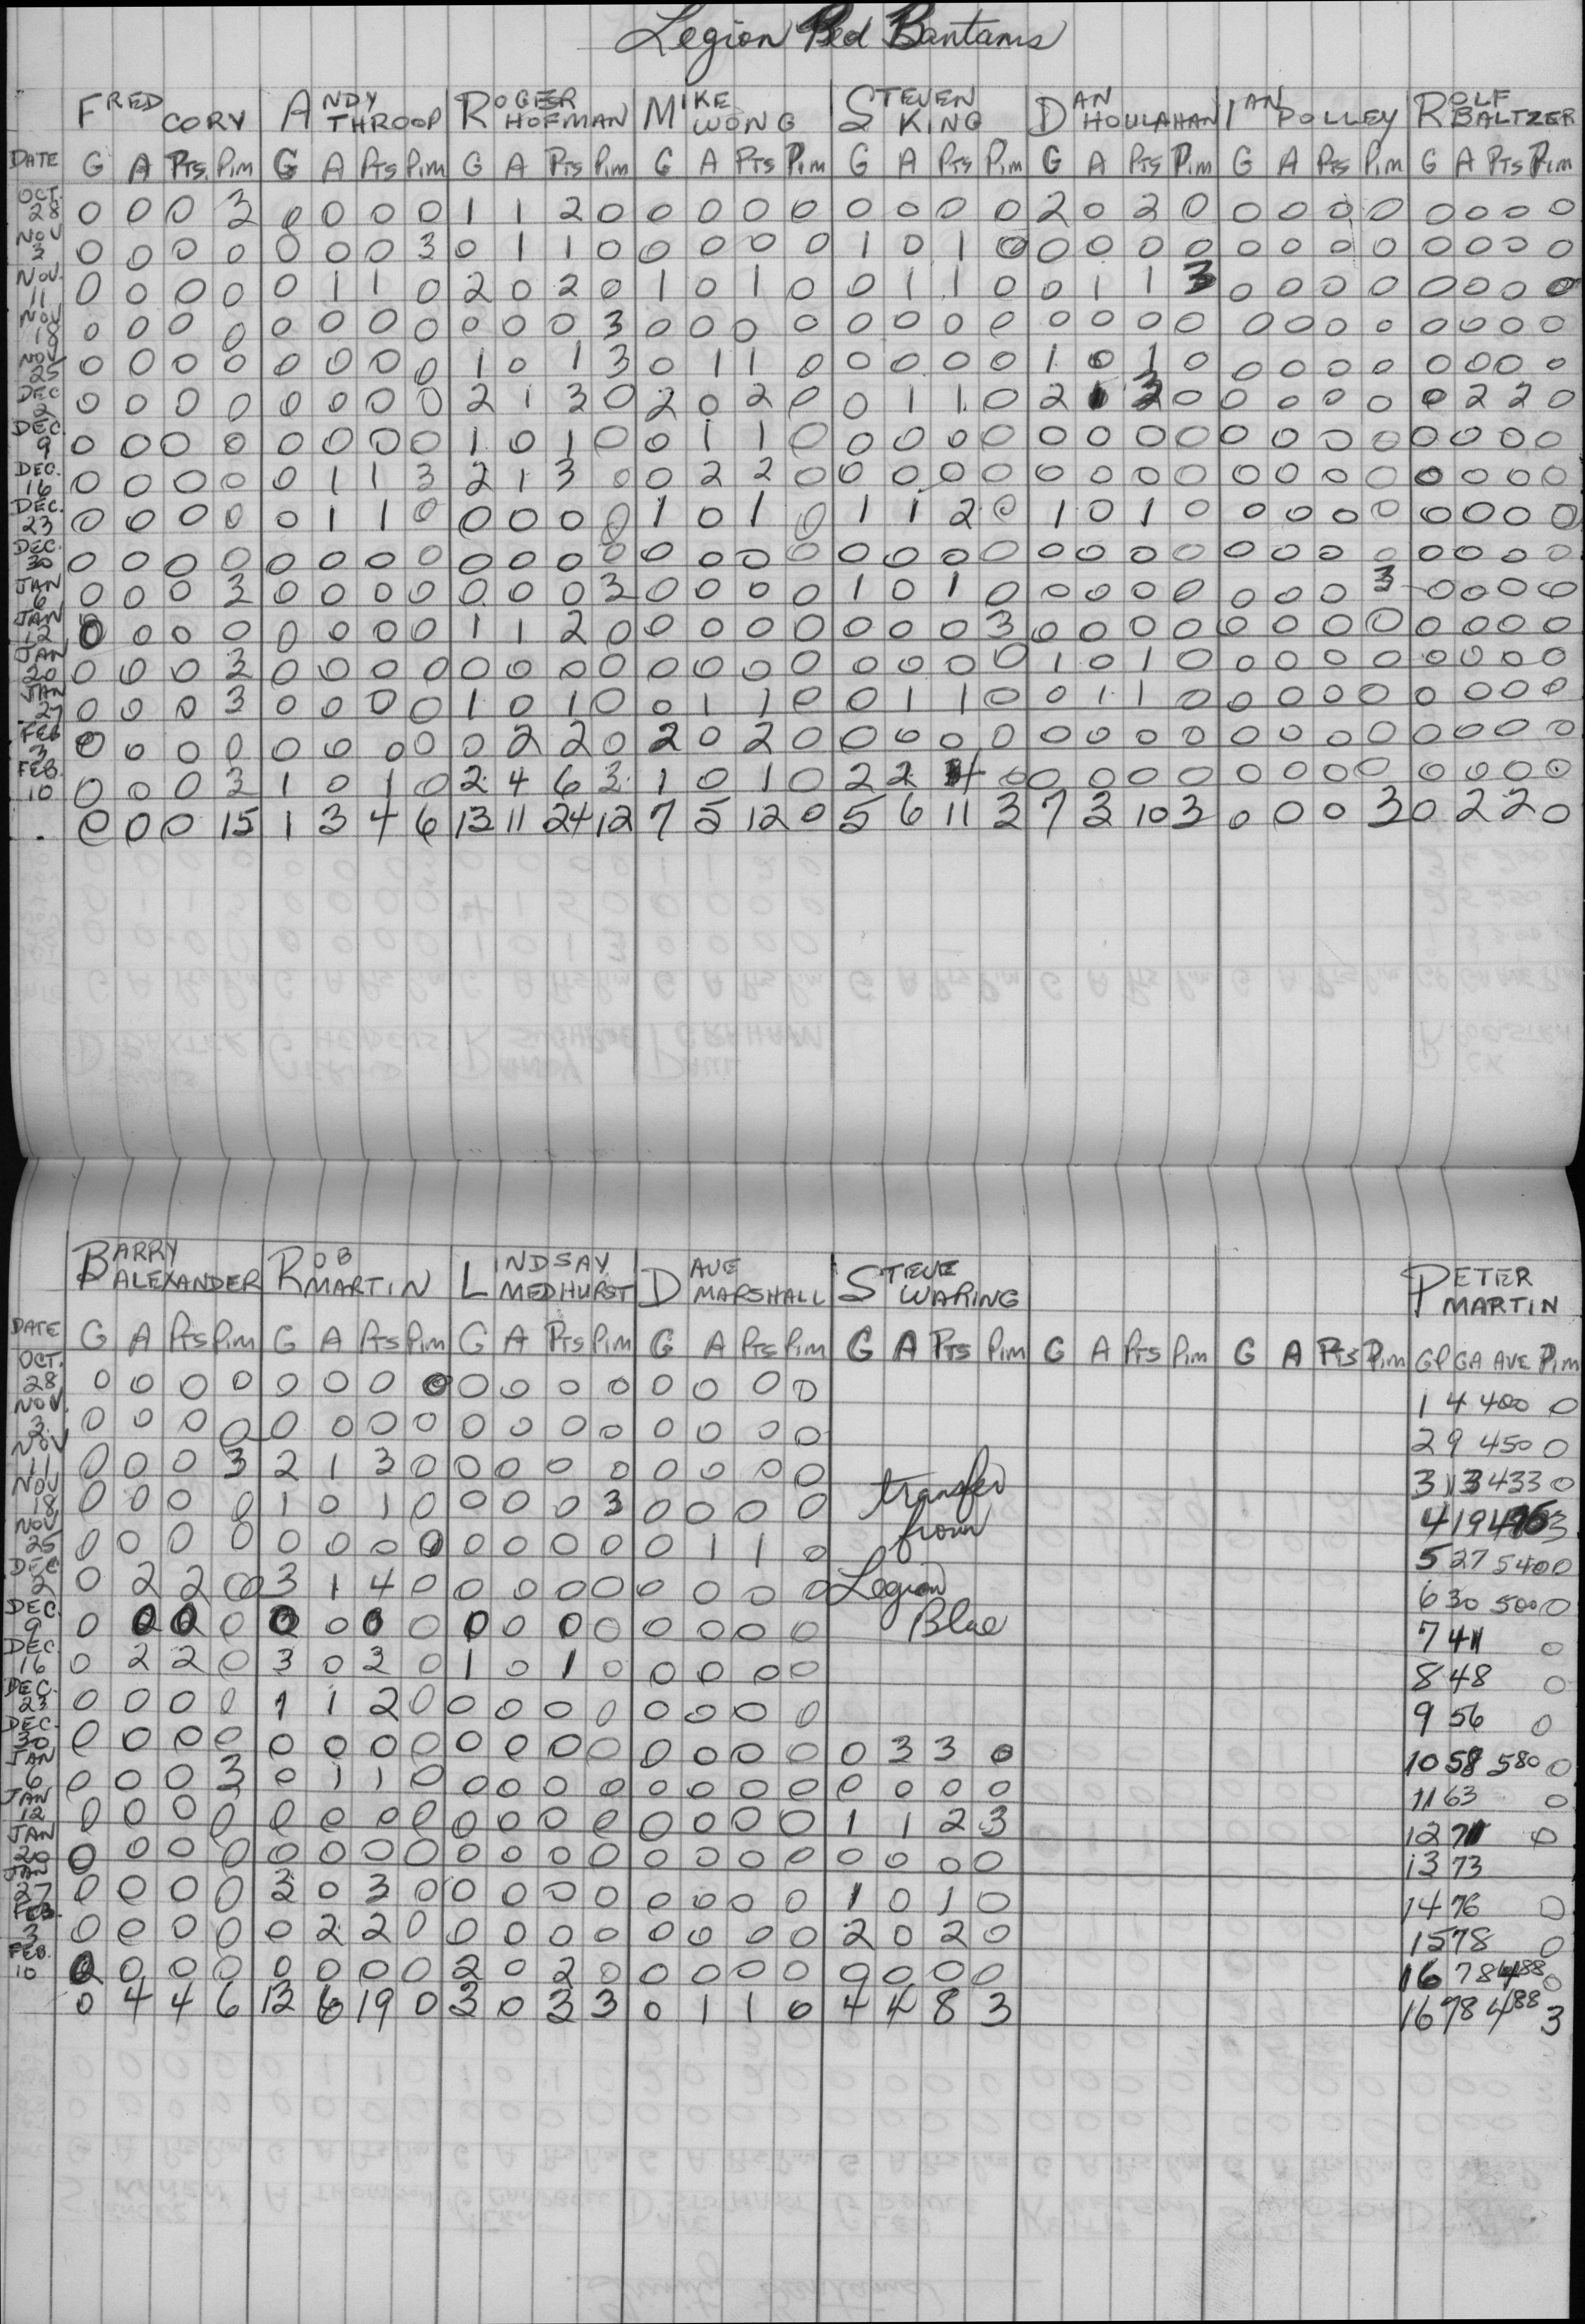 Legion Red Bantams
FRED CORY ANDY THROOP ROGER HOFMAN MIKE WONG STEVEN KING DAN HOULAHAN IAN POLLEY ROLF BALTZER
DATE G A Pts Pim G A Pts Pim G A Pts Pim G A Pts Pim G A Pts Pim G A Pts Pim G A Pts Pim G A Pts Pim
OCT. 28 0 0 0 3 0 0 0 0 1 1 2 0 0 0 0 0 0 0 0 0 2 0 2 0 0 0 0 0 0 0 0 0
NOV 3 0 0 0 0 0 0 0 3 0 1 1 0 0 0 0 0 1 0 1 0 0 0 0 0 0 0 0 0 0 0 0 0
NOV. 11 0 0 0 0 0 1 1 0 2 0 2 0 1 0 1 0 0 1 1 0 0 1 1 3 0 0 0 0 0 0 0 0
NOV 18 0 0 0 0 0 0 0 0 0 0 0 3 0 0 0 0 0 0 0 0 0 0 0 0 0 0 0 0 0 0 0 0
NOV 25 0 0 0 0 0 0 0 0 1 0 1 3 0 1 1 0 0 0 0 0 1 0 1 0 0 0 0 0 0 0 0 0
DEC 2 0 0 0 0 0 0 0 0 2 1 3 0 2 0 2 0 0 1 1 0 2 1 3 0 0 0 0 0 0 2 2 0
DEC. 9 0 0 0 0 0 0 0 0 1 0 1 0 0 1 1 0 0 0 0 0 0 0 0 0 0 0 0 0 0 0 0 0
DEC. 16 0 0 0 0 0 1 1 3 2 1 3 0 0 2 2 0 0 0 0 0 0 0 0 0 0 0 0 0 0 0 0 0
DEC. 23 0 0 0 0 0 1 1 0 0 0 0 0 1 0 1 0 1 1 2 0 1 0 1 0 0 0 0 0 0 0 0 0
DEC. 30 0 0 0 0 0 0 0 0 0 0 0 0 0 0 0 0 0 0 0 0 0 0 0 0 0 0 0 0 0 0 0 0
JAN 6 0 0 0 3 0 0 0 0 0 0 0 3 0 0 0 0 1 0 1 0 0 0 0 0 0 0 0 3 0 0 0 0
JAN 12 0 0 0 0 0 0 0 0 1 1 2 0 0 0 0 0 0 0 0 3 0 0 0 0 0 0 0 0 0 0 0 0
JAN 20 0 0 0 3 0 0 0 0 0 0 0 0 0 0 0 0 0 0 0 0 1 0 1 0 0 0 0 0 0 0 0 0
JAN 27 0 0 0 3 0 0 0 0 1 0 1 0 0 1 1 0 0 1 1 0 0 1 1 0 0 0 0 0 0 0 0 0
FEB 3 0 0 0 0 0 0 0 0 0 2 2 0 2 0 2 0 0 0 0 0 0 0 0 0 0 0 0 0 0 0 0 0
FEB. 10 0 0 0 3 1 0 1 0 2 4 6 3 1 0 1 0 2 2 4 0 0 0 0 0 0 0 0 0 0 0 0 0
0 0 0 15 1 3 4 6 13 11 24 12 7 5 12 0 5 6 11 3 7 3 10 3 0 0 0 3 0 2 2 0
BARRY ALEXANDER ROB MARTIN LINDSAY MEDHURST DAVE MARSHALL STEVE WARING PETER MARTIN
DATE G A Pts Pim G A Pts Pim G A Pts Pim G A Pts Pim G A Pts Pim G A Pts Pim G A Pts Pim GP GA AVE Pim
OCT. 28 0 0 0 0 0 0 0 0 0 0 0 0 0 0 0 0 1 4 400 0
NOV. 3 0 0 0 0 0 0 0 0 0 0 0 0 0 0 0 0 2 9 450 0
NOV 11 0 0 0 3 2 1 3 0 0 0 0 0 0 0 0 0 transfer 3 13 433 0
NOV 18 0 0 0 0 1 0 1 0 0 0 0 3 0 0 0 0 from 4 19 3
NOV 25 0 0 0 0 0 0 0 0 0 0 0 0 0 1 1 0 5 27 540 0
DEC 2 0 2 2 0 3 1 4 0 0 0 0 0 0 0 0 0 Legion 6 30 500 0
DEC. 9 0 0 0 0 0 0 0 0 0 0 0 0 0 0 0 0 Blue 7 41 0
DEC. 16 0 2 2 0 3 0 3 0 1 0 1 0 0 0 0 0 8 48 0
DEC. 23 0 0 0 0 1 1 2 0 0 0 0 0 0 0 0 0 9 56 0
DEC. 30 0 0 0 0 0 0 0 0 0 0 0 0 0 0 0 0 0 3 3 0 10 58 580 0
JAN 6 0 0 0 3 0 1 1 0 0 0 0 0 0 0 0 0 0 0 0 0 11 63 0
JAN 12 0 0 0 0 0 0 0 0 0 0 0 0 0 0 0 0 1 1 2 3 12 71 0
JAN 20 0 0 0 0 0 0 0 0 0 0 0 0 0 0 0 0 0 0 0 0 13 73
JAN 27 0 0 0 0 3 0 3 0 0 0 0 0 0 0 0 0 1 0 1 0 14 76 0
FEB. 3 0 0 0 0 0 2 2 0 0 0 0 0 0 0 0 0 2 0 2 0 15 78 0
FEB. 10 0 0 0 0 0 0 0 0 2 0 2 0 0 0 0 0 0 0 0 0 16 78 488 0
0 4 4 6 13 6 19 0 3 0 3 3 0 1 1 0 4 4 8 3 16 78 488 3